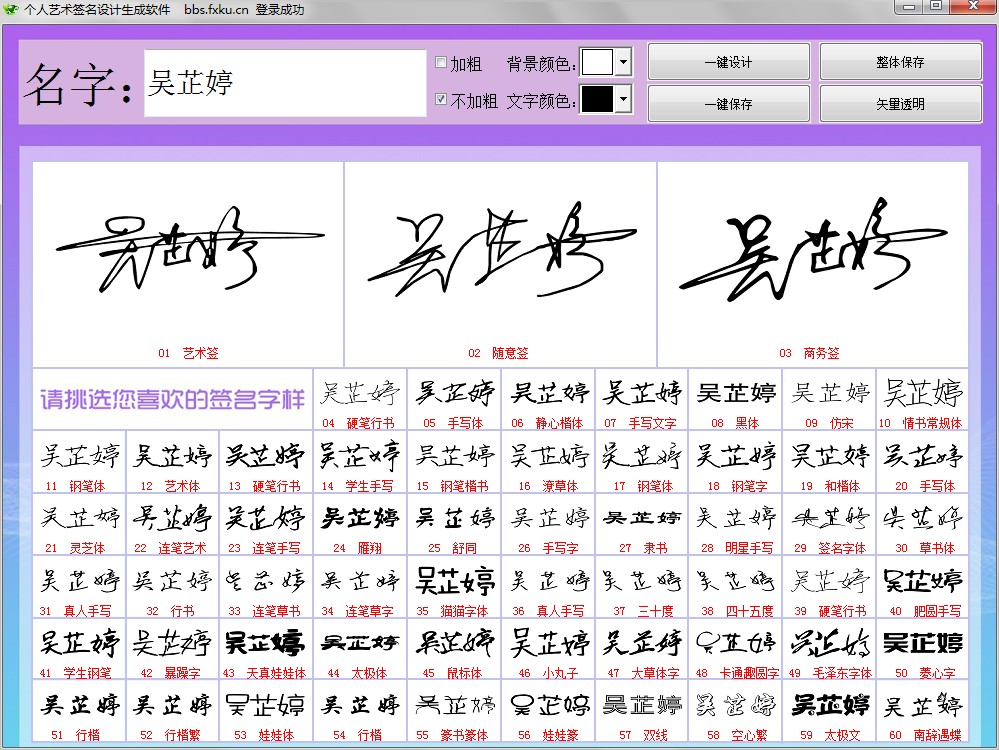 个人艺术签名设计生成软件 bbs.fxku.cn 登录成功
名字: 吴芷婷 加粗 背景颜色: 一键设计 整体保存
不加粗 文字颜色: 一键保存 矢量透明
吴芷婷 吴芷婷 吴芷婷
01 艺术签 02 随意签 03 商务签
请挑选您喜欢的签名字样 吴芷婷 吴芷婷 吴芷婷 吴芷婷 吴芷婷 吴芷婷 吴芷婷
04 硬笔行书 05 手写体 06 静心楷体 07 手写文字 08 黑体 09 仿宋 10 情书常规体
吴芷婷 吴芷婷 吴芷婷 吴芷婷 吴芷婷 吴芷婷 吴芷婷 吴芷婷 吴芷婷 吴芷婷
11 钢笔体 12 艺术体 13 硬笔行书 14 学生手写 15 钢笔楷书 16 潦草体 17 钢笔体 18 钢笔字 19 和楷体 20 手写体
吴芷婷 吴芷婷 吴芷婷 吴芷婷 吴芷婷 吴芷婷 吴芷婷 吴芷婷 吴芷婷 吴芷婷
21 灵芝体 22 连笔艺术 23 连笔手写 24 雁翔 25 舒同 26 手写字 27 隶书 28 明星手写 29 签名字体 30 草书体
吴芷婷 吴芷婷 吴芷婷 吴芷婷 吴芷婷 吴芷婷 吴芷婷 吴芷婷 吴芷婷 吴芷婷
31 真人手写 32 行书 33 连笔草书 34 连笔草字 35 猫猫字体 36 真人手写 37 三十度 38 四十五度 39 硬笔行书 40 肥圆手写
吴芷婷 吴芷婷 吴芷婷 吴芷婷 吴芷婷 吴芷婷 吴芷婷 吴芷婷 吴芷婷 吴芷婷
41 学生钢笔 42 暴躁字 43 天真娃娃体 44 太极体 45 鼠标体 46 小丸子 47 大草体字 48 卡通趣圆字 49 毛泽东字体 50 菱心字
吴芷婷 吴芷婷 吴芷婷 吴芷婷 吴芷婷 吴芷婷 吴芷婷 吴芷婷 吴芷婷 吴芷婷
51 行楷 52 行楷繁 53 娃娃体 54 行楷 55 篆书篆体 56 娃娃篆 57 双线 58 空心繁 59 太极文 60 南辞遇蝶